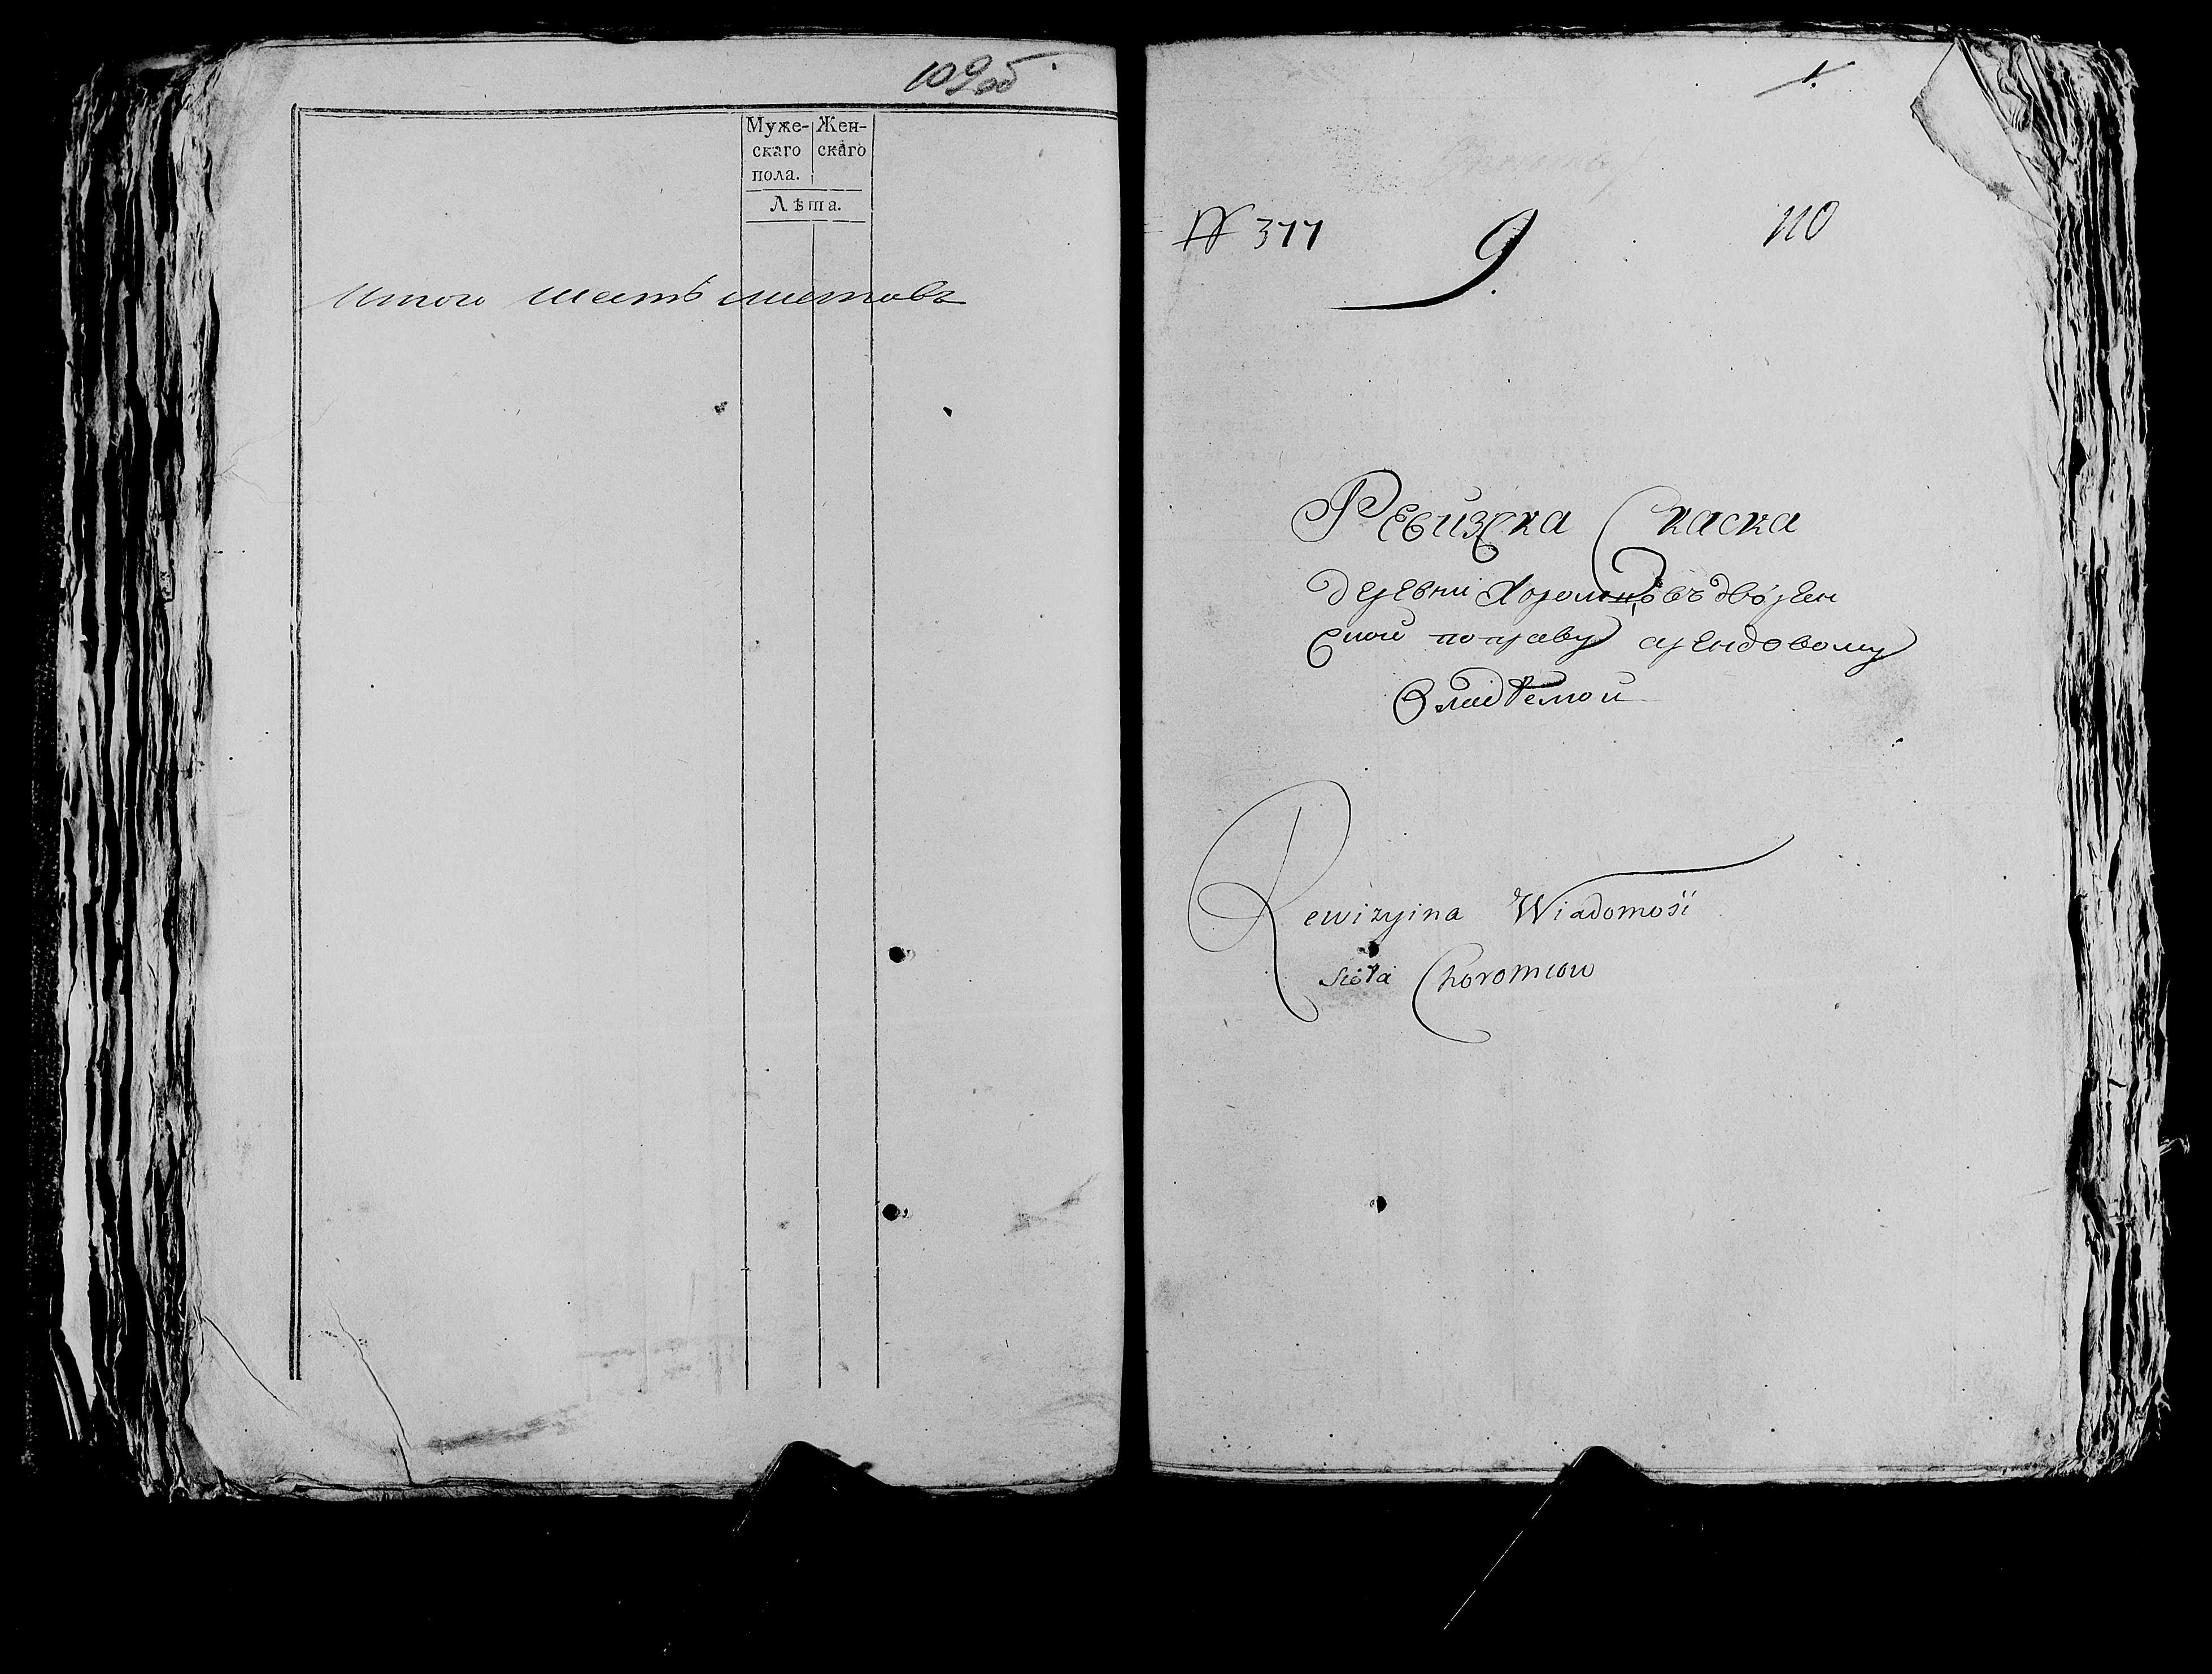 109об
Муже- Жен-
скаго скаго
пола.
Лѣта.
Итого шесть листовъ
1.
№ 377 9 110
Ревизска Скаска
деревни Хоромцовъ дворен
ской по праву арендовому
Владѣемой
Rewizyina Wiadomość
sioła Choromcow